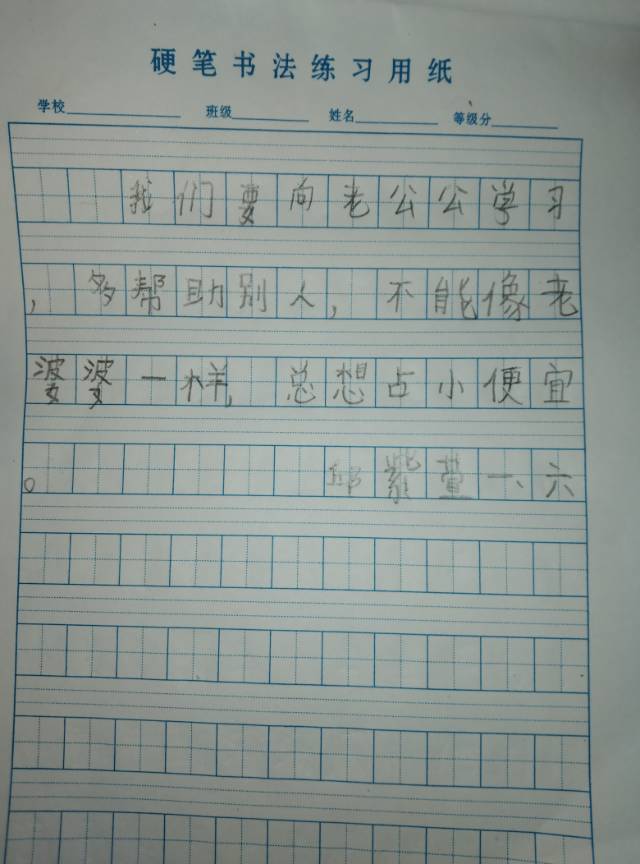 硬笔书法练习用纸
学校 班级 姓名 等级分
我们要向老公公学习
，多帮助别人，不能像老
婆婆一样，总想占小便宜
。邱紫萱一、六